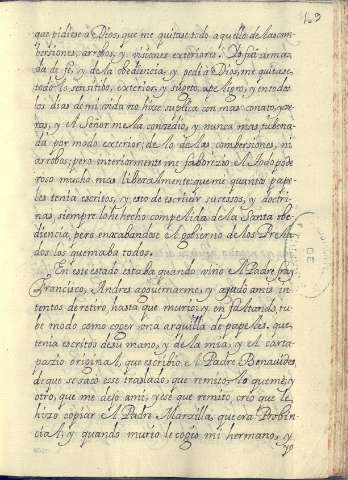 169
que pidiese a Dios, que me quitase todo aquello de las com-
bersiones, arrobos, y visiones exteriores. Yo fui arma-
da de fe, y de la obediencia, y pedi a Dios, me quitase
todo lo sensitibo, exterior, y sugeto a peligro, y en todos
los dias de mi vida no hize suplica con mas conato, y ve-
ras, y el Señor me la concedio, y nunca mas tube na-
da por modo exterior, de lo de las combersiones, ni
arrobos; pero interiormente me faborezio el Todo pode
roso mucho mas liberalmente: quemè quantos pape-
les tenia escritos, y esto de escrivir sucessos, y doctri-
nas, siempre lo he hecho compelida de la santa obe-
diencia, pero en acabandose el gobierno de los Prela-
dos los quemaba todos.
En este estado estaba quando vino el Padre fray
Francisco Andres a governarme, y ayudo a mis in-
tentos de retiro, hasta que murio; y en faltando, tu-
be modo como coger una arquilla de papeles, que
tenia escritos de su mano, y de la mia, y el carta-
pazio original, que escribio el Padre Benavides,
de que se saco esse traslado, que remito, lo quemè, y
otro, que me dejo a mi, y ese que remito, creo que le
hizo copiar el Padre Marzilla, que era Probin-
cial, y quando murio le cogio mi hermano, y
yo